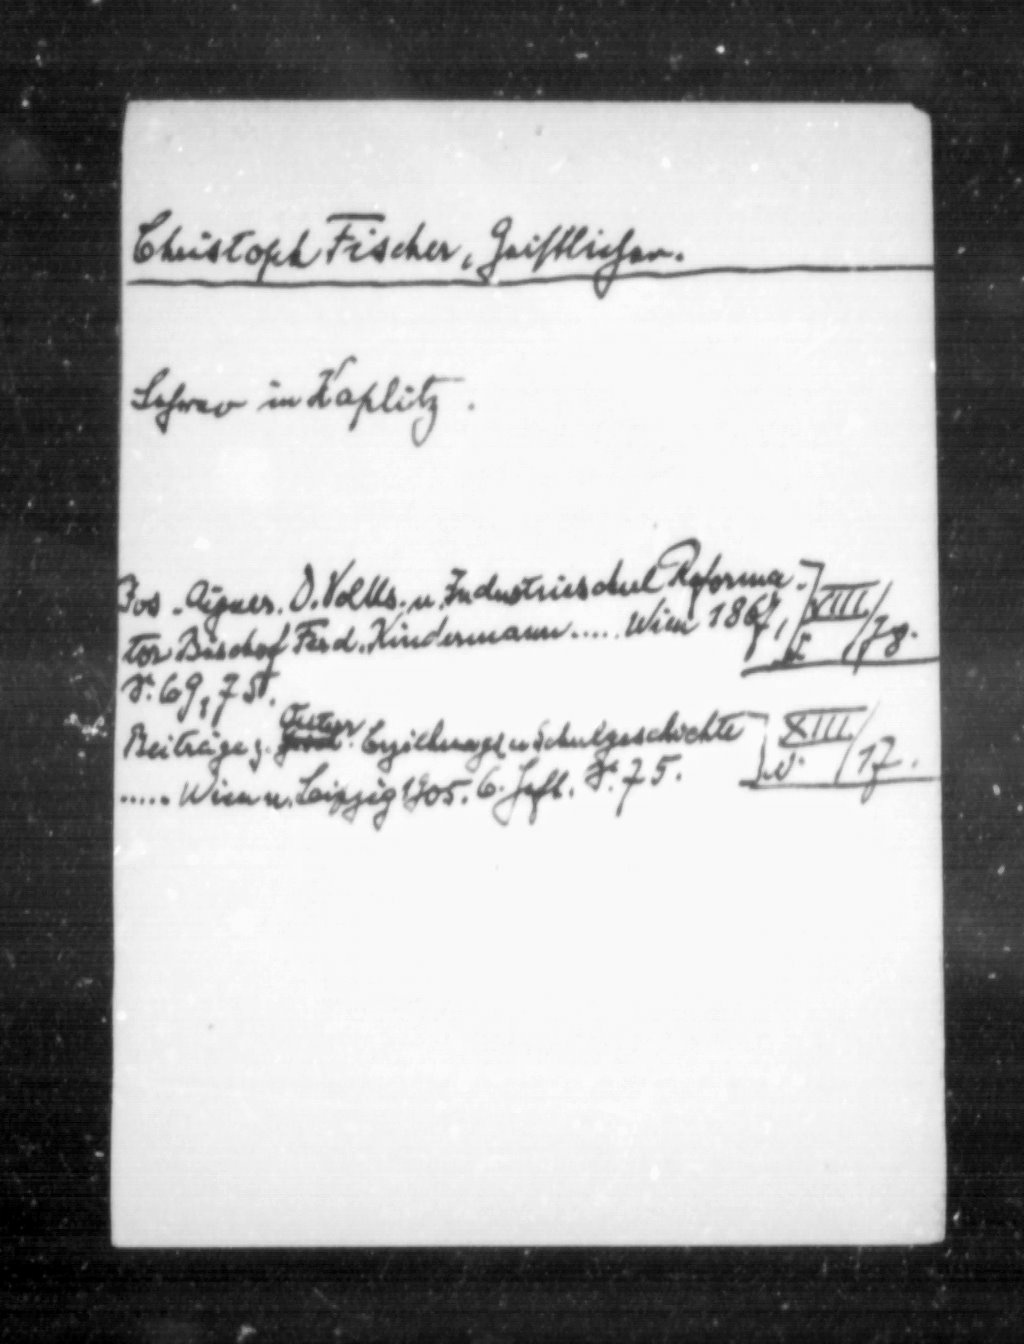 Christoph Fischer, Geistlicher.
Lehrer in Kaplitz.
Jos. Aigner. D. Volks- u. Industrieschul Reforma-
tor Bischof Ferd. Kindermann..... Wien 1867, VIII/78.
S. 69, 75.
Beiträge z. Österr. Erziehungs u Schulgeschichte XIII/17.
..... Wien u. Leipzig 1905. 6. Heft. S. 75.